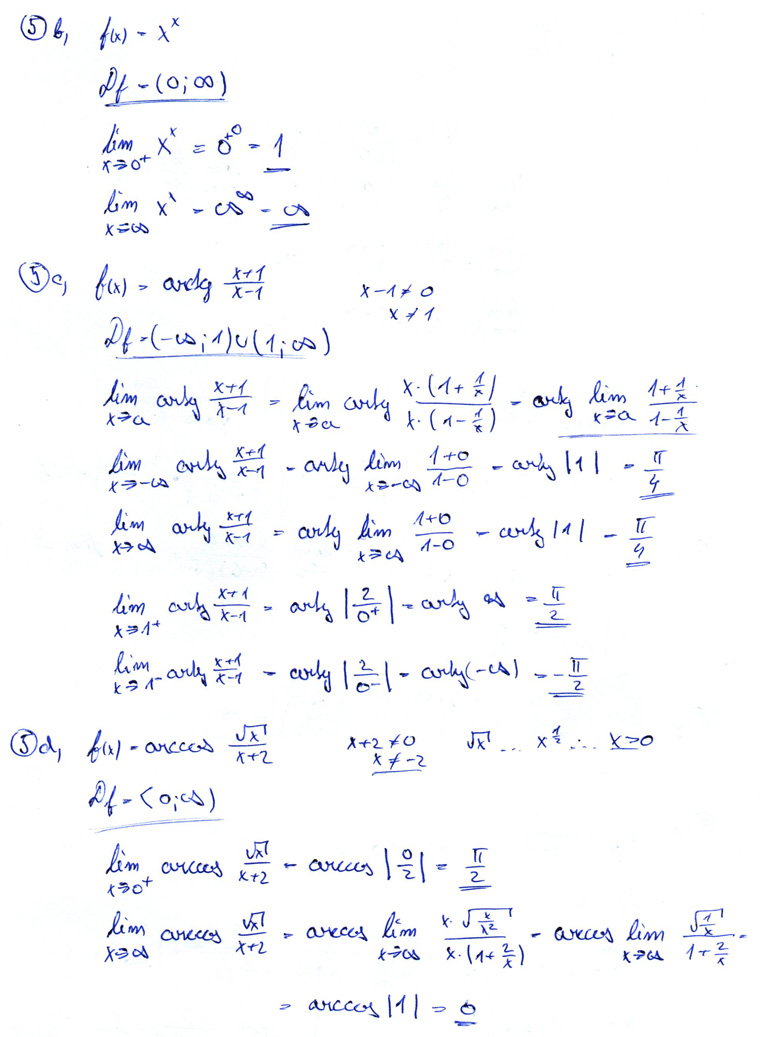 ⑤ b, f(x) = x^x
Df = (0; ∞)
lim_{x→0⁺} x^x = 0^{+0} = 1
lim_{x→∞} x^x = ∞^∞ = ∞
⑤ c, f(x) = arctg (x+1)/(x-1)   x-1 ≠ 0
x ≠ 1
Df = (-∞; 1) ∪ (1; ∞)
lim_{x→a} arctg (x+1)/(x-1) = lim_{x→a} arctg (x·(1+1/x))/(x·(1-1/x)) = arctg lim_{x→a} (1+1/x)/(1-1/x)
lim_{x→-∞} arctg (x+1)/(x-1) = arctg lim_{x→-∞} (1+0)/(1-0) = arctg |1| = π/4
lim_{x→∞} arctg (x+1)/(x-1) = arctg lim_{x→∞} (1+0)/(1-0) = arctg |1| = π/4
lim_{x→1⁺} arctg (x+1)/(x-1) = arctg |2/0⁺| = arctg ∞ = π/2
lim_{x→1⁻} arctg (x+1)/(x-1) = arctg |2/0⁻| = arctg (-∞) = -π/2
⑤ d, f(x) = arccos √x/(x+2)   x+2 ≠ 0   √x ... x^{1/2} ... x ≥ 0
x ≠ -2
Df = <0; ∞)
lim_{x→0⁺} arccos √x/(x+2) = arccos |0/2| = π/2
lim_{x→∞} arccos √x/(x+2) = arccos lim_{x→∞} (x·√(x/x²))/(x·(1+2/x)) = arccos lim_{x→∞} √(1/x)/(1+2/x) =
= arccos |1| = 0